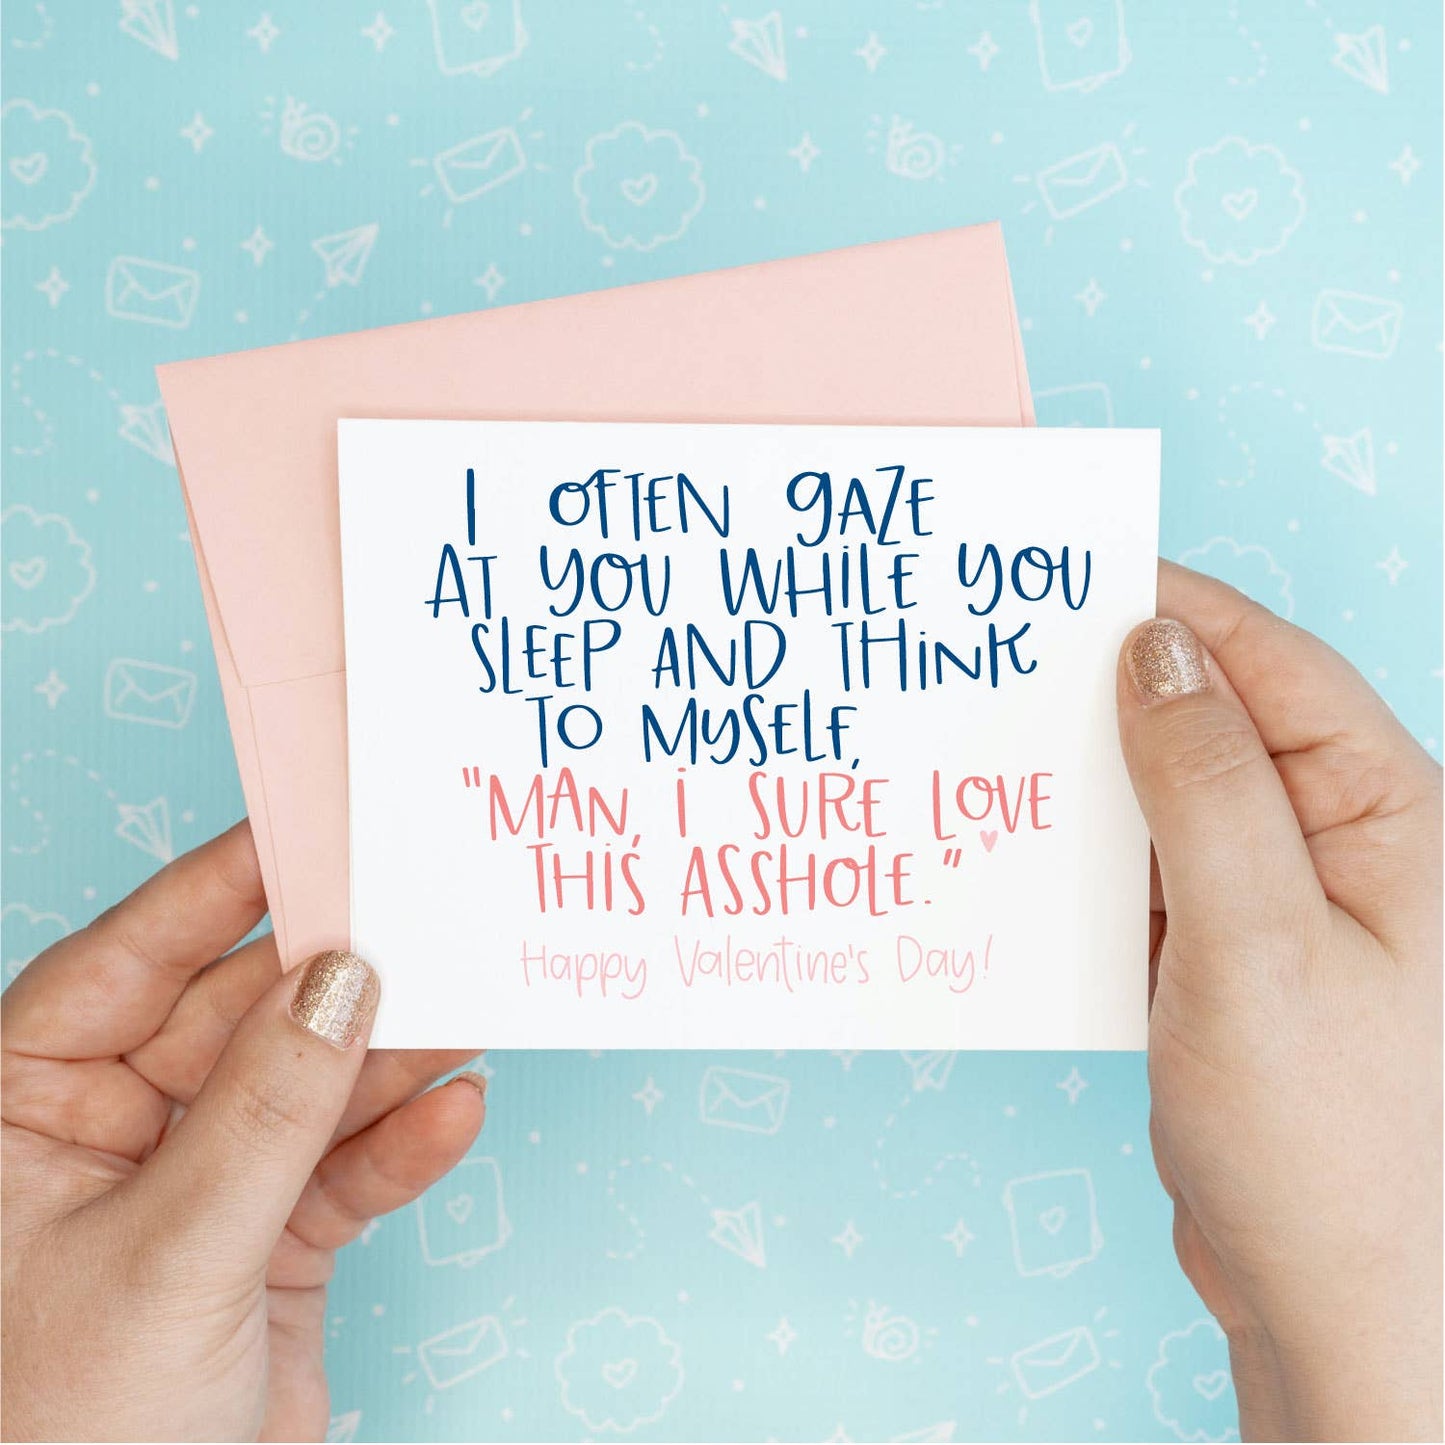 I OFTEN GAZE
AT YOU WHILE YOU
SLEEP AND THINK
TO MYSELF,
"MAN, I SURE LOVE
THIS ASSHOLE."
Happy Valentine's Day!